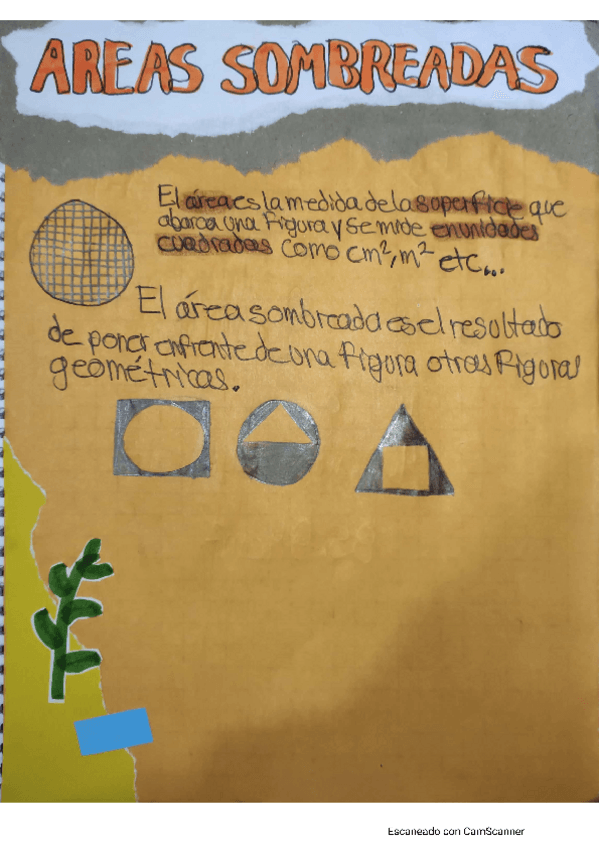 AREAS SOMBREADAS
El área es la medida de la superficie que
abarca una figura y se mide en unidades
cuadradas como cm², m² etc...
El área sombreada es el resultado
de poner enfrente de una figura otras figuras
geométricas.
Escaneado con CamScanner